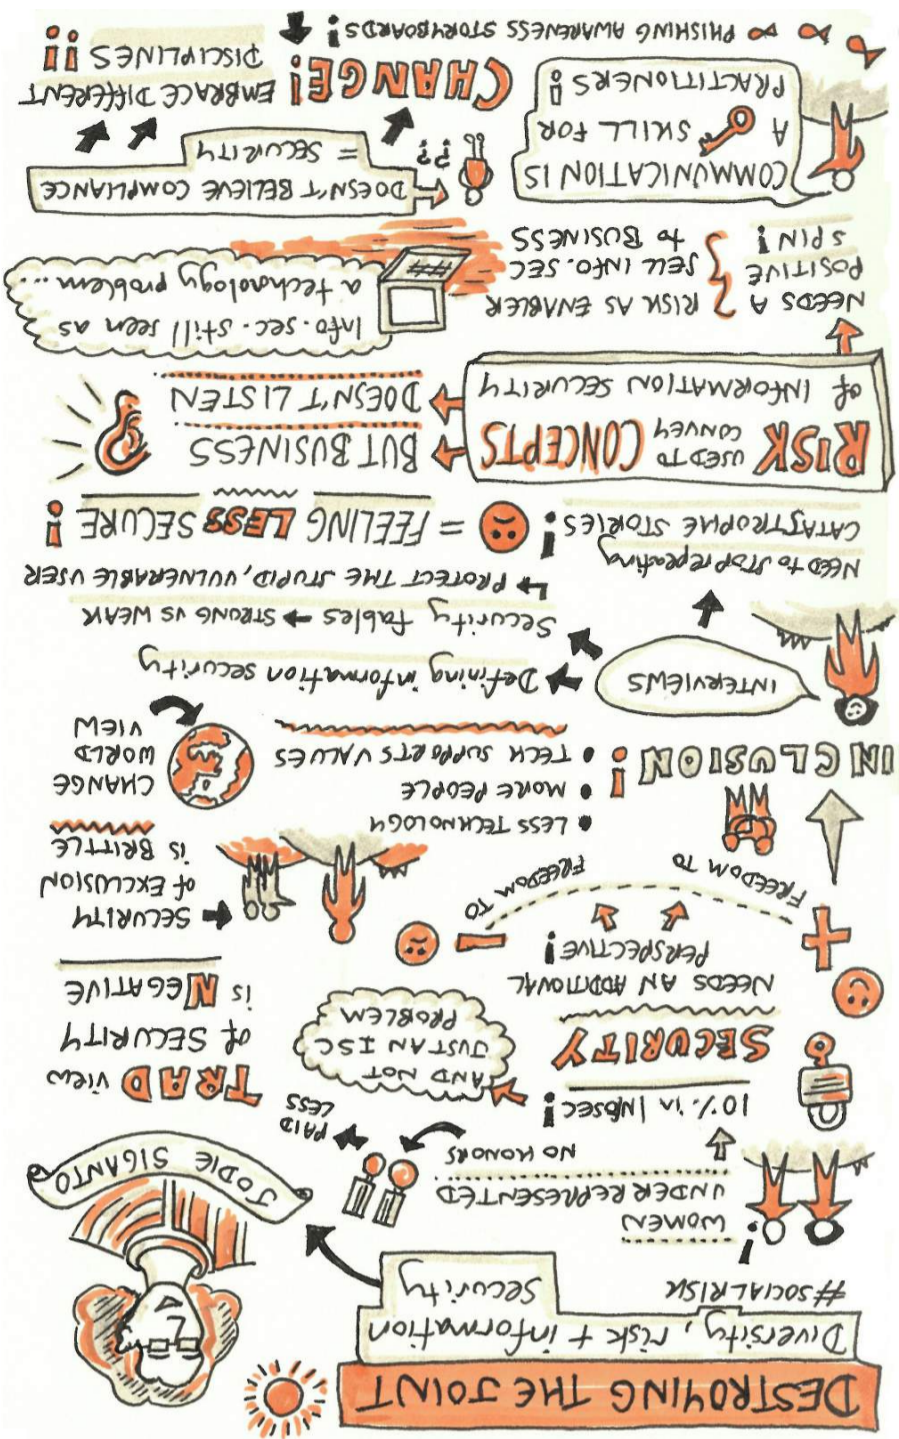 DESTROYING THE JOINT
Diversity, risk + information
Security
#SOCIALRISK
JODIE SIGANTO
WOMEN
UNDER REPRESENTED
NO HONORS
PAID
LESS
10% in INFOSEC!
AND NOT
JUST AN ISC
PROBLEM
TRAD view
of SECURITY
is NEGATIVE
SECURITY
NEEDS AN ADDITIONAL
PERSPECTIVE!
FREEDOM TO
FREEDOM TO
SECURITY
of EXCLUSION
is BRITTLE
INCLUSION!
• LESS TECHNOLOGY
• MORE PEOPLE
• TECH SUPPORTS VALUES
CHANGE
WORLD
VIEW
INTERVIEWS
Defining information security
Security fables → STRONG VS WEAK
↳ PROTECT THE STUPID, VULNERABLE USER
NEED to STOP repeating
CATASTROPHE STORIES!
= FEELING LESS SECURE!
RISK USED TO
CONVEY CONCEPTS
of INFORMATION SECURITY
BUT BUSINESS
DOESN'T LISTEN
NEEDS A
POSITIVE
SPIN!
RISK AS ENABLER
SELL INFO.SEC
to BUSINESS
##
Info.sec. still seen as
a technology problem ...
COMMUNICATION IS
A SKILL FOR
PRACTITIONERS!
??
DOESN'T BELIEVE COMPLIANCE
= SECURITY
CHANGE!
EMBRACE DIFFERENT
DISCIPLINES !!
PHISHING AWARENESS STORYBOARDS!